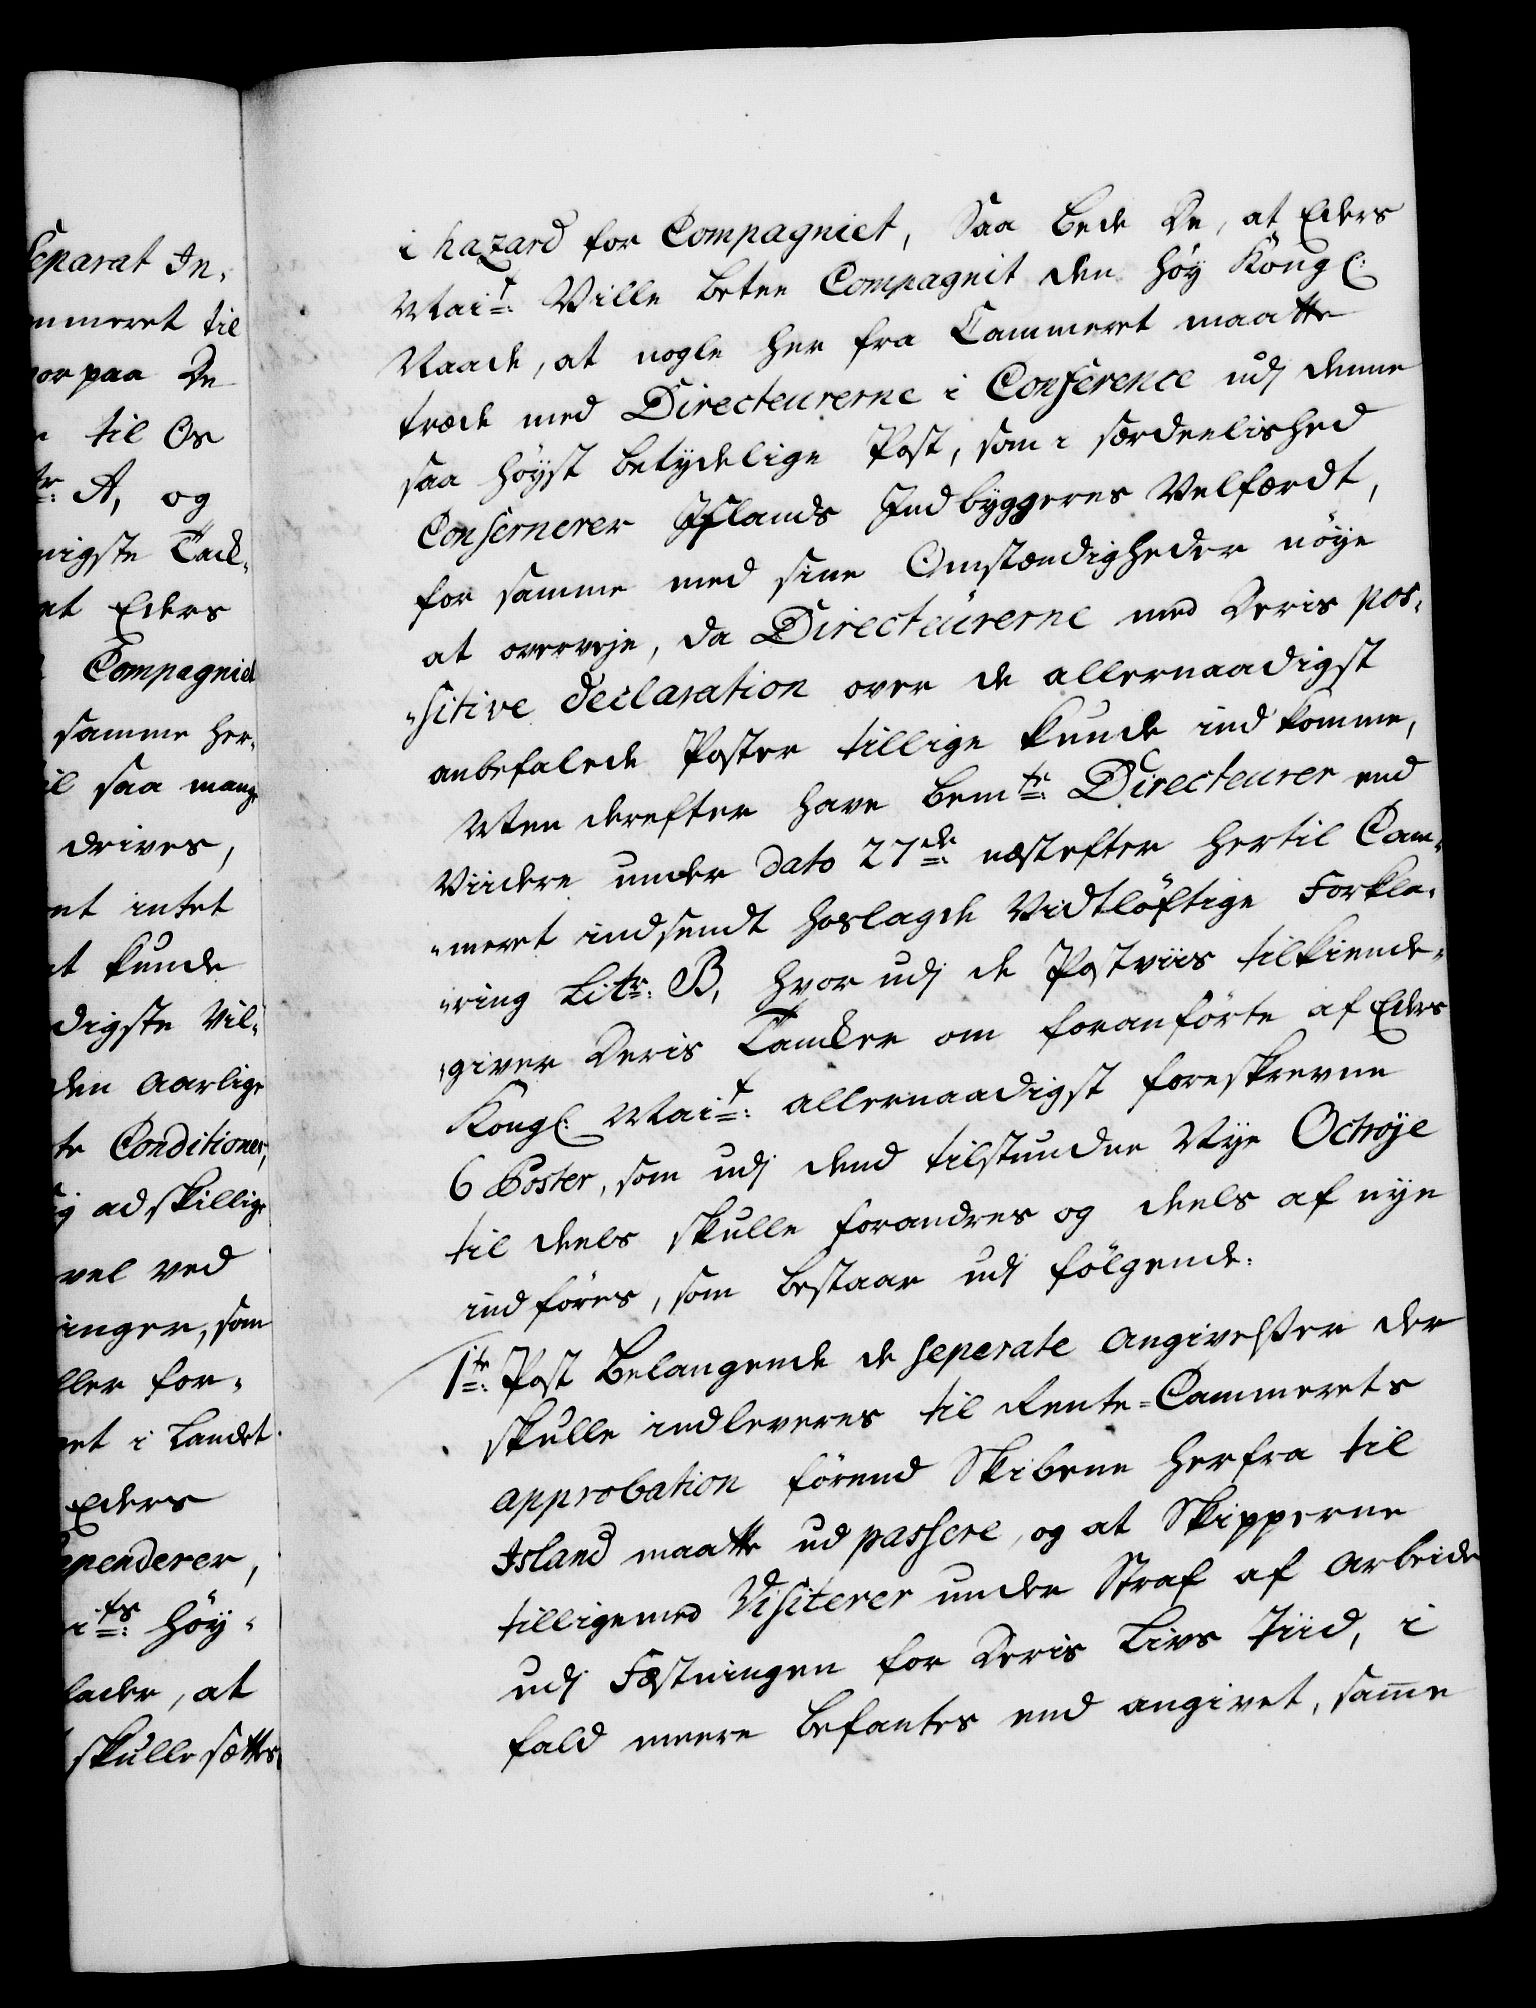 Separat In-
ammeret til
vorpaa De
til Os
tr: A, og
nigste Tack-
at Eders
Compagniet
samme her-
til saa mange
drives,
et intet
at kunde
digste Vil-
den Aarlige
te Conditioner,
sig adskillige
vel ved
inger, som
ller for-
et i Landet
Eders
dependerer,
its: Höy-
lader, at
skulle sættes
i hazard for Compagniet, Saa bede De, at Eders
Mait: Ville betee Compagnit den höy Kongl:
Naade, at nogle her fra Cammeret maatte
træde med Directeurerne i Conference udj denne
saa höyst betydelige Post, som i særdeelished
Consernerer Islands Indbyggeres Velfærdt,
for samme med sine Omstændigheder nöye
at overveje, da Directeurerne med Deris pos-
-sitive declaration over de allernaadigst
anbefalede Poster tillige kunde ind komme,
Men derefter have bemte: Directeurer end
Viidere under Dato 27de næstefter hertil Cam-
-meret indsendt hoslagde Vidtlöftige Forkla-
-ring Litr: B, hvor udj de Postviis tilkiende-
-giver Deris Tancker om foranförte af Eders
Kongl: Mait: allernaadigst foreskrevne
6 Poster, som udj dend tilstundne Nye Octroje
til deels skulle forandres og deels af nye
indföres, som bestaar udj fölgende:
1te: Post Belangende de seperate Angivelser der
skulle indleveres til Rente-Cammerets
approbation förend Skibene herfra til
Island maatte ud passere, og at Skipperne
tilligemed Visiterer under Straf af Arbeide
udj Fæstningen for Deris Livs Tiid, i
fald meere befantes end angivet, samme